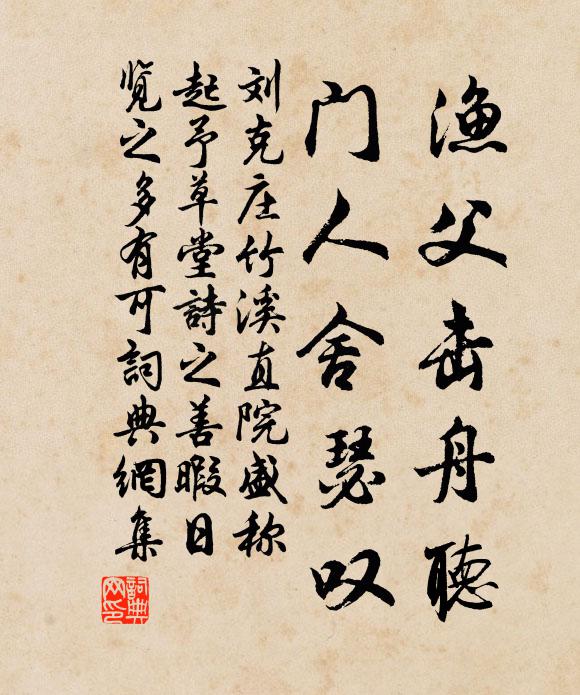 渔父击舟聴
门人舍瑟叹
刘克庄竹溪直院盛称
起予草堂詩之善暇日
覧之多有可詞典網集
詞典网印